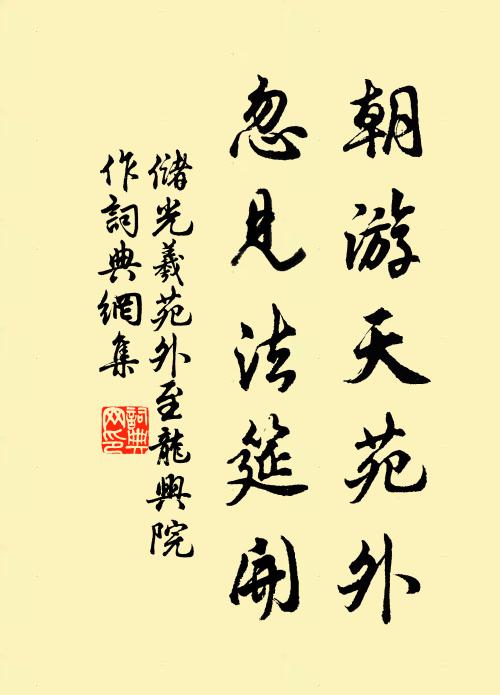 朝游天苑外
忽见法筵開
儲光羲苑外至龍興院
作詞典網集
詞典网印